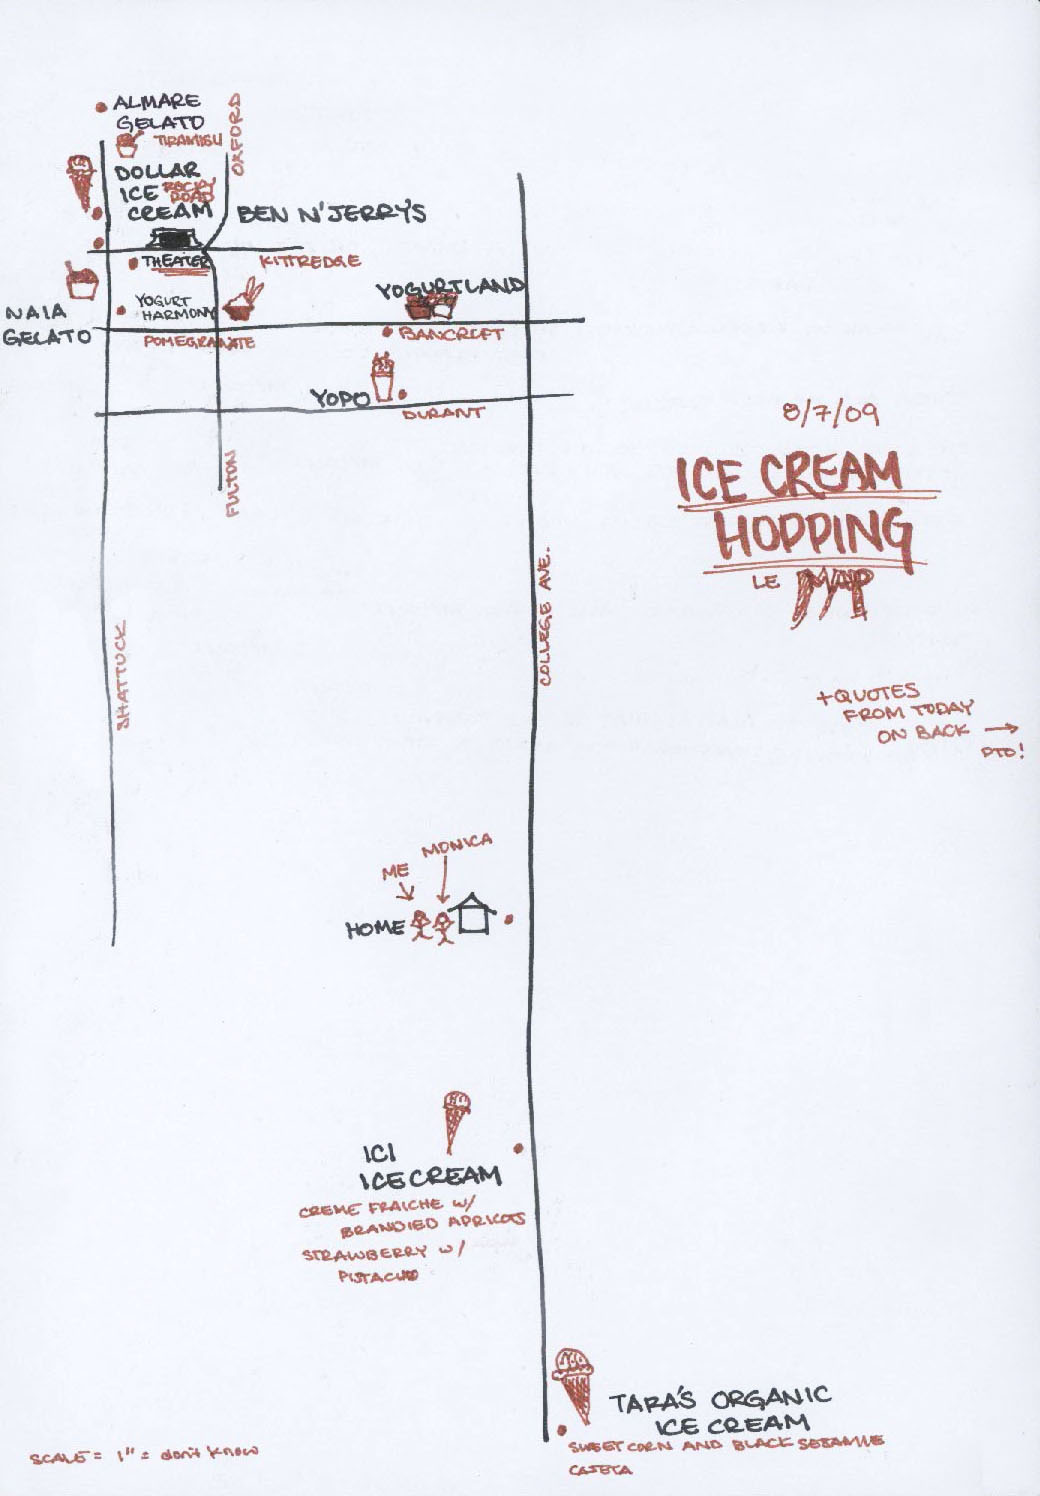 ALMARE
GELATO
TIRAMISU
OXFORD
DOLLAR
ICE ROCKY
ROAD
CREAM
BEN N' JERRY'S
THEATER
KITTREDGE
NAIA
GELATO
YOGURT
HARMONY
POMEGRANATE
YOGURTLAND
BANCROFT
YOPO
DURANT
FULTON
8/7/09
ICE CREAM
HOPPING
LE MAP
SHATTUCK
COLLEGE AVE.
+QUOTES
FROM TODAY
ON BACK →
PTO!
ME
MONICA
HOME
ICI
ICE CREAM
CREME FRAICHE W/
BRANDIED APRICOTS
STRAWBERRY W/
PISTACHIO
TARA'S ORGANIC
ICE CREAM
SWEET CORN AND BLACK SESAME
CAJETA
SCALE = 1" = don't know